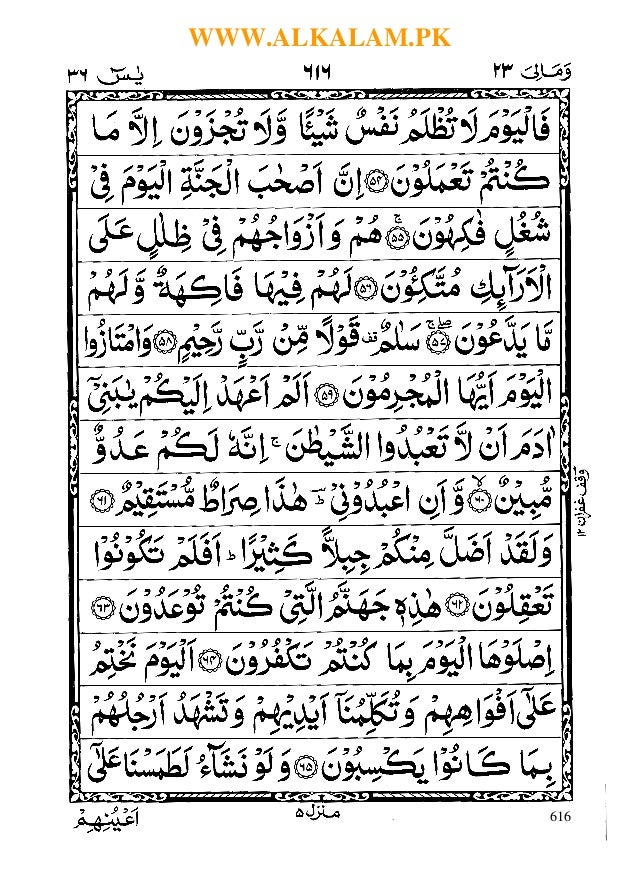 WWW.ALKALAM.PK
وَمَالِیَ ٢٣
٦١٦
يٰسٓ ٣٦
فَالْيَوْمَ لَا تُظْلَمُ نَفْسٌ شَيْـًٔا وَّلَا تُجْزَوْنَ اِلَّا مَا
كُنْتُمْ تَعْمَلُوْنَ ﴿۵۴﴾ اِنَّ اَصْحٰبَ الْجَنَّةِ الْيَوْمَ فِیْ
شُغُلٍ فٰكِهُوْنَ ﴿۵۵﴾ۚ هُمْ وَاَزْوَاجُهُمْ فِیْ ظِلٰلٍ عَلَی
الْاَرَآئِكِ مُتَّكِـُٔوْنَ ﴿۵۶﴾ لَهُمْ فِيْهَا فَاكِهَةٌ وَّلَهُمْ
مَّا يَدَّعُوْنَ ﴿۵۷﴾ۚۖ سَلٰمٌ قف قَوْلًا مِّنْ رَّبٍّ رَّحِيْمٍ ﴿۵۸﴾ وَامْتَازُوا
الْيَوْمَ اَيُّهَا الْمُجْرِمُوْنَ ﴿۵۹﴾ اَلَمْ اَعْهَدْ اِلَيْكُمْ يٰبَنِیْٓ
اٰدَمَ اَنْ لَّا تَعْبُدُوا الشَّيْطٰنَ ۚ اِنَّهٗ لَكُمْ عَدُوٌّ
مُّبِيْنٌ ﴿۶۰﴾ۙ وَّاَنِ اعْبُدُوْنِیْ ؕ هٰذَا صِرَاطٌ مُّسْتَقِيْمٌ ﴿۶۱﴾
وقف غفران ١٢
وَلَقَدْ اَضَلَّ مِنْكُمْ جِبِلًّا كَثِيْرًا ؕ اَفَلَمْ تَكُوْنُوْا
تَعْقِلُوْنَ ﴿۶۲﴾ هٰذِهٖ جَهَنَّمُ الَّتِیْ كُنْتُمْ تُوْعَدُوْنَ ﴿۶۳﴾
اِصْلَوْهَا الْيَوْمَ بِمَا كُنْتُمْ تَكْفُرُوْنَ ﴿۶۴﴾ اَلْيَوْمَ نَخْتِمُ
عَلٰٓی اَفْوَاهِهِمْ وَتُكَلِّمُنَآ اَيْدِيْهِمْ وَتَشْهَدُ اَرْجُلُهُمْ
بِمَا كَانُوْا يَكْسِبُوْنَ ﴿۶۵﴾ وَلَوْ نَشَآءُ لَطَمَسْنَا عَلٰٓی
اَعْيُنِهِمْ
منزل ٥
616